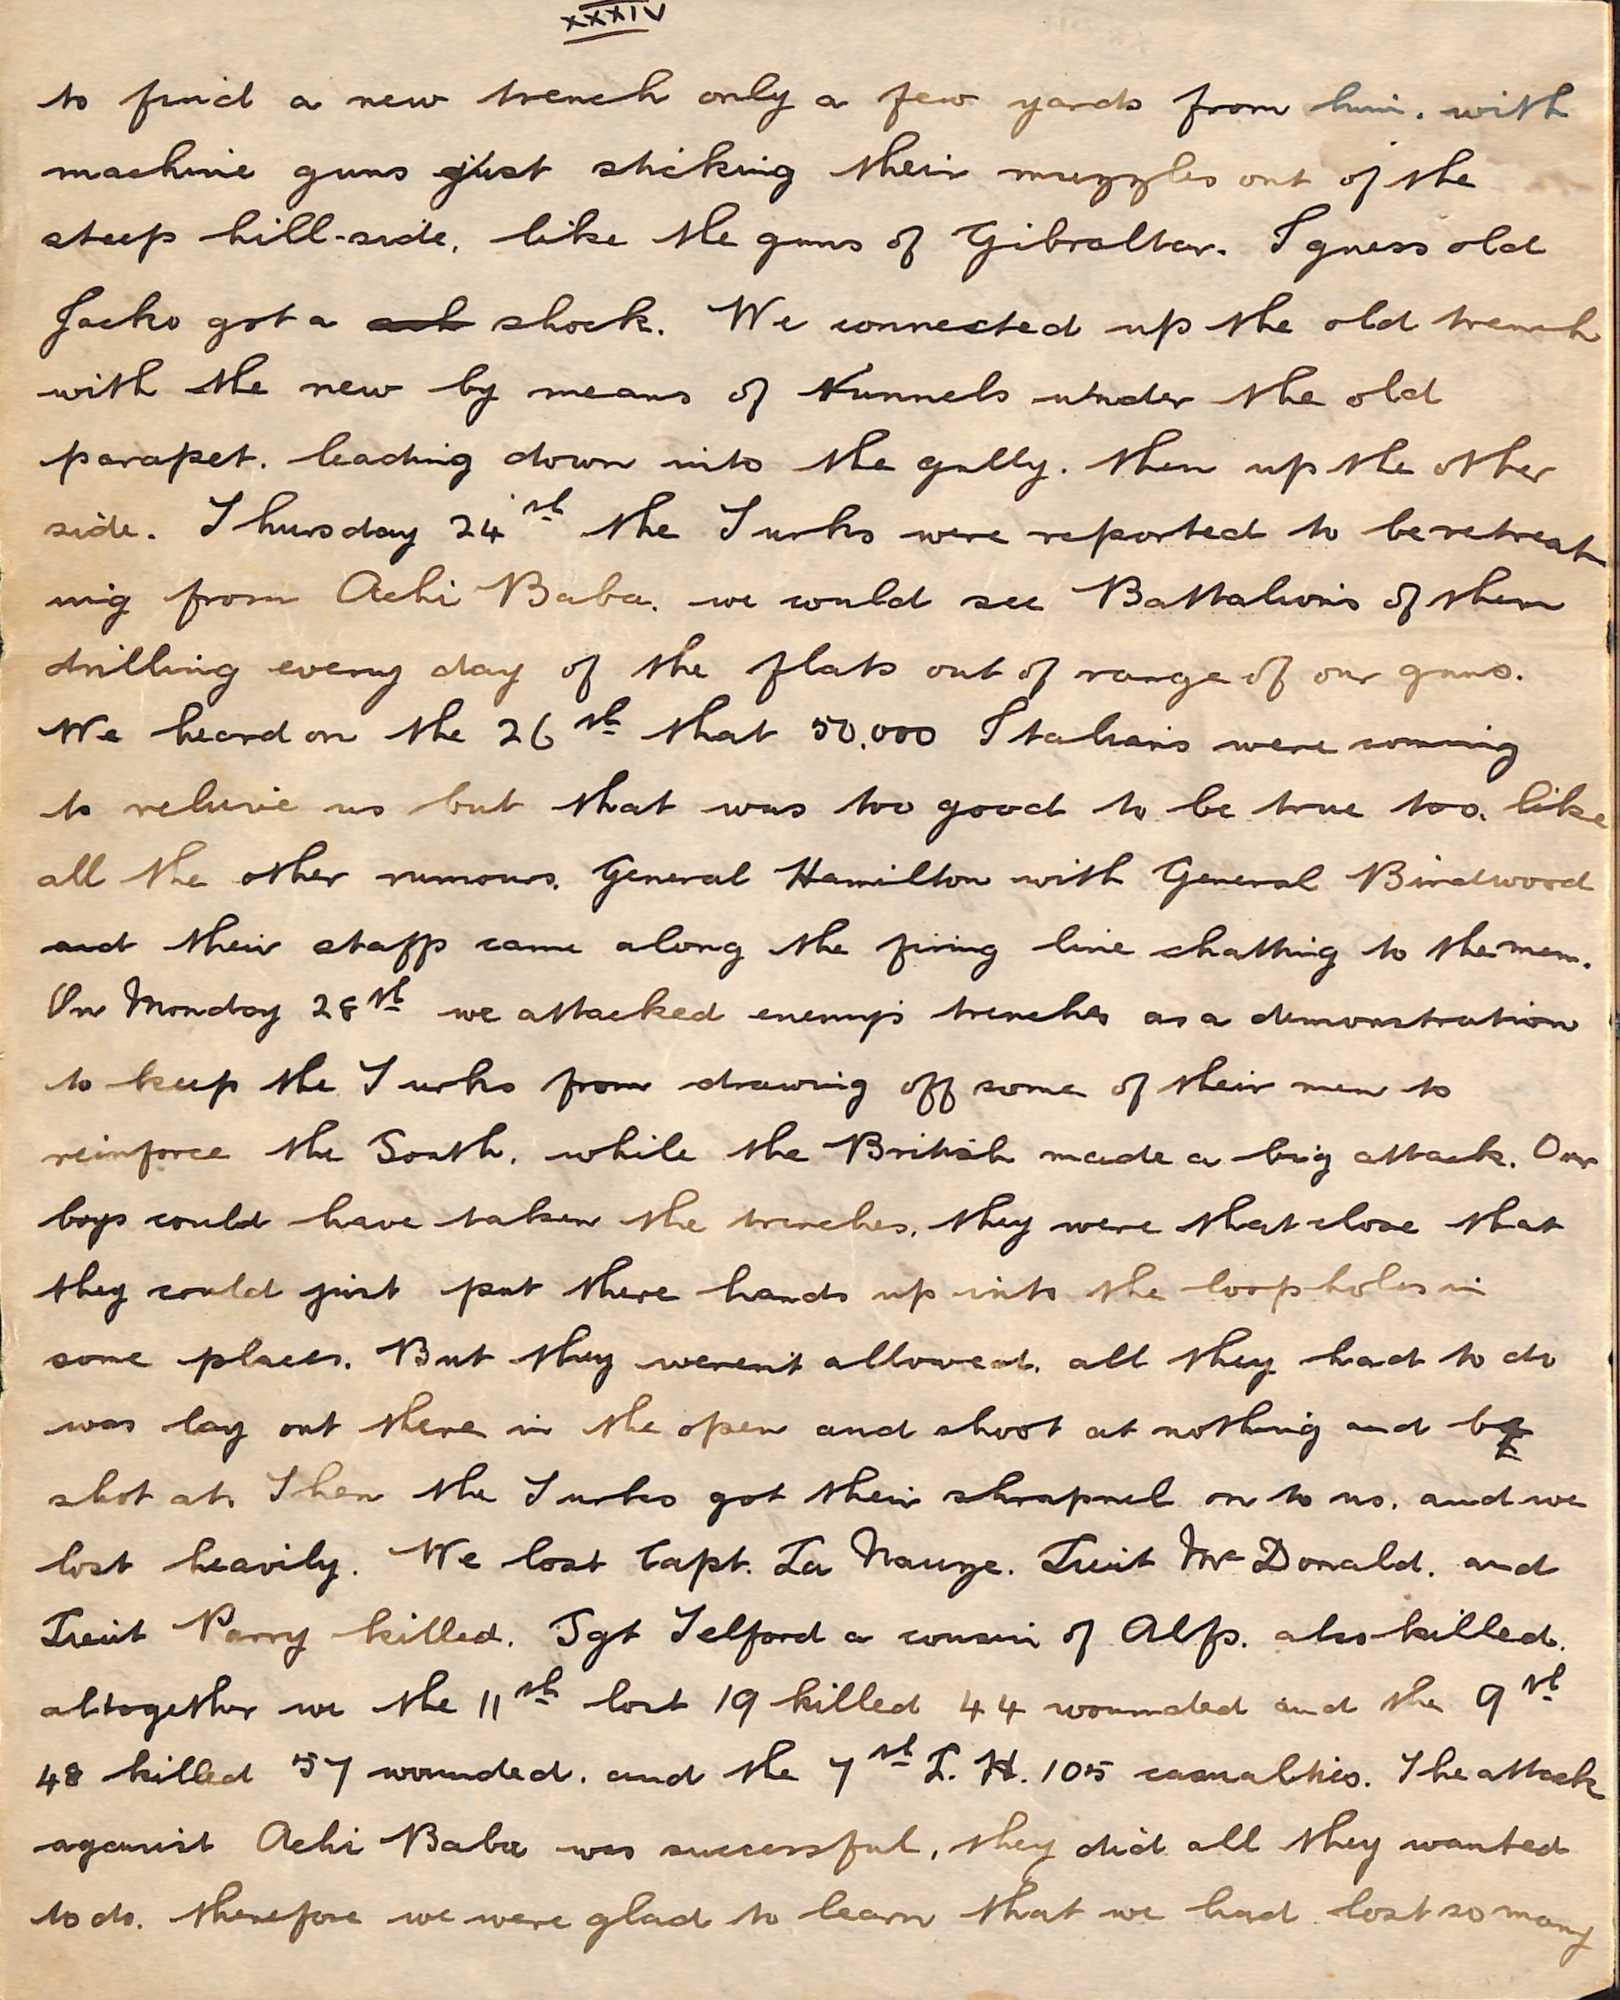 XXXIV
to find a new trench only a few yards from him. with
machine guns just sticking their muzzles out of the
steep hill-side, like the guns of Gibraltar. I guess old
Jacko got a shock. We connected up the old trench
with the new by means of tunnels under the old
parapet. leading down into the gully. then up the other
side. Thursday 24th the Turks were reported to be retreat-
ing from Achi Baba. we could see Battalions of them
drilling every day of the flats out of range of our guns.
We heard on the 26th that 50,000 Italians were coming
to relieve us but that was too good to be true too. like
all the other rumours. General Hamilton with General Birdwood
and their staff came along the firing line chatting to the men.
On Monday 28th we attacked enemy's trenches as a demonstration
to keep the Turks from drawing off some of their men to
reinforce the South, while the British made a big attack. Our
boys could have taken the trenches, they were that close that
they could just put there hands up into the loopholes in
some places. But they weren't allowed. all they had to do
was lay out there in the open and shoot at nothing and be
shot at. Then the Turks got their shrapnel on to us. and we
lost heavily. We lost Capt. La Nauze. Lieut McDonald. and
Lieut Parry killed. Sgt Telford a cousin of Alfs. also killed.
altogether we the 11th lost 19 killed 44 wounded and the 9th
48 killed 57 wounded. and the 7th L. H. 105 casualties. The attack
against Achi Baba was successful, they did all they wanted
to do. therefore we were glad to learn that we had lost so many